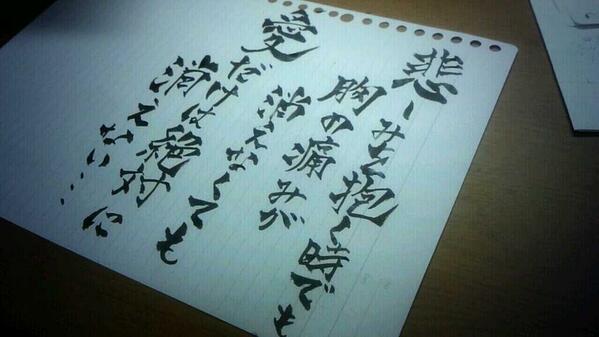 悲しみを抱く時でも
胸の痛みが
消えなくても
愛だけは絶対に
消えない…